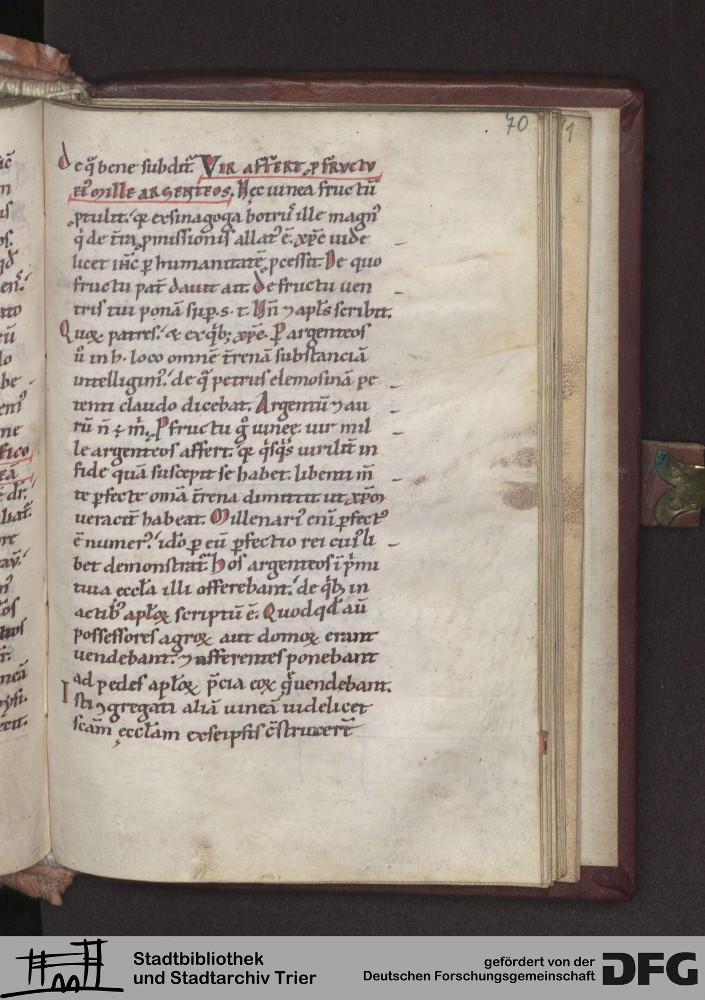 70
71
De q̄ bene subdit᷑. VIR AFFERT ꝓ FRVCTV
EI᷒ MILLE ARGENTEOS. Hęc uinea fructū
ꝓtulit. q̄ exsinagoga botrꝰ ille magnꝰ
q̇ de t̄ra ꝓmissionis allatꝰ ē. xp̄c uide
licet ihc̄ ꝑ humanitatē ꝓcessit. De quo
fructu pat̄ dauit ait. De fructu uen
tris tui ponā sup̄. s. t. Hn̄ ⁊ apl̄s scribit.
Quoꝝ patres. & ex q̇bꝫ xp̄c. P argenteos
ů in h. loco omnē t̄renā substanciā
intelligimꝰ. de q̄ petrus elemosinā pe
tenti claudo dicebat. Argentū ⁊ au
rū n̄ ÷ m̄. P fructu g̊ uineę. uir mil
le argenteos affert. q̄ q̇sq̇s uirilit̄ in
fide quā suscepit se habet. libenti m̄
te ꝑfecte om̄a t̄rena dimittit ut xp̄m
ueracit̄ habeat. Millenariꝰ eni ꝑfectꝰ
ē numerꝰ. ido ꝑ eū ꝑfectio rei cuiꝰli
bet demonstrat᷑. Hos argenteos ī pͥmi
tiua eccl̄a illi offerebant. de q̇bꝫ in
actibꝰ apl̄oꝝ scriptū ē. Quodqd̄ aū
possessores agroꝝ aut domoꝝ erant
uendebant. ⁊ afferentes ponebant
ad pedes apl̄oꝝ p̄cia eoꝝ q̄ uendebant.
Isti ꝯgregati aliā uineā uidelicet
sc̄am ęccl̄am exseipsis c̄struxer̄t
Stadtbibliothek
und Stadtarchiv Trier
gefördert von der
Deutschen Forschungsgemeinschaft
DFG